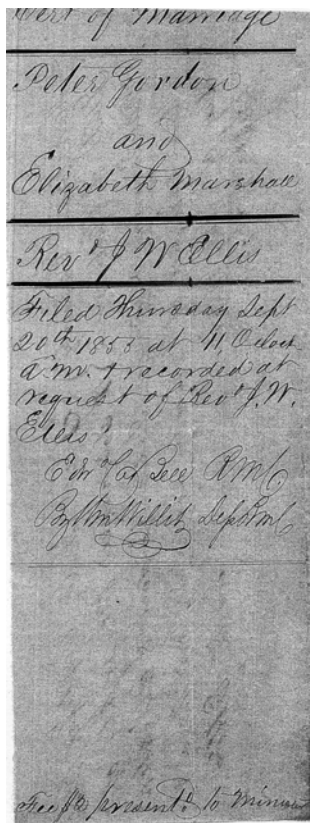 Cert of Marriage
Peter Gordon
and
Elizabeth Marshall
Revd J W Ellis
Filed Thursday Sept
20th 1855 at 11 Oclock
a.m. & recorded at
request of Revd J.W.
Ellis
By Wm Willis Dep
Fee $2 present.d to